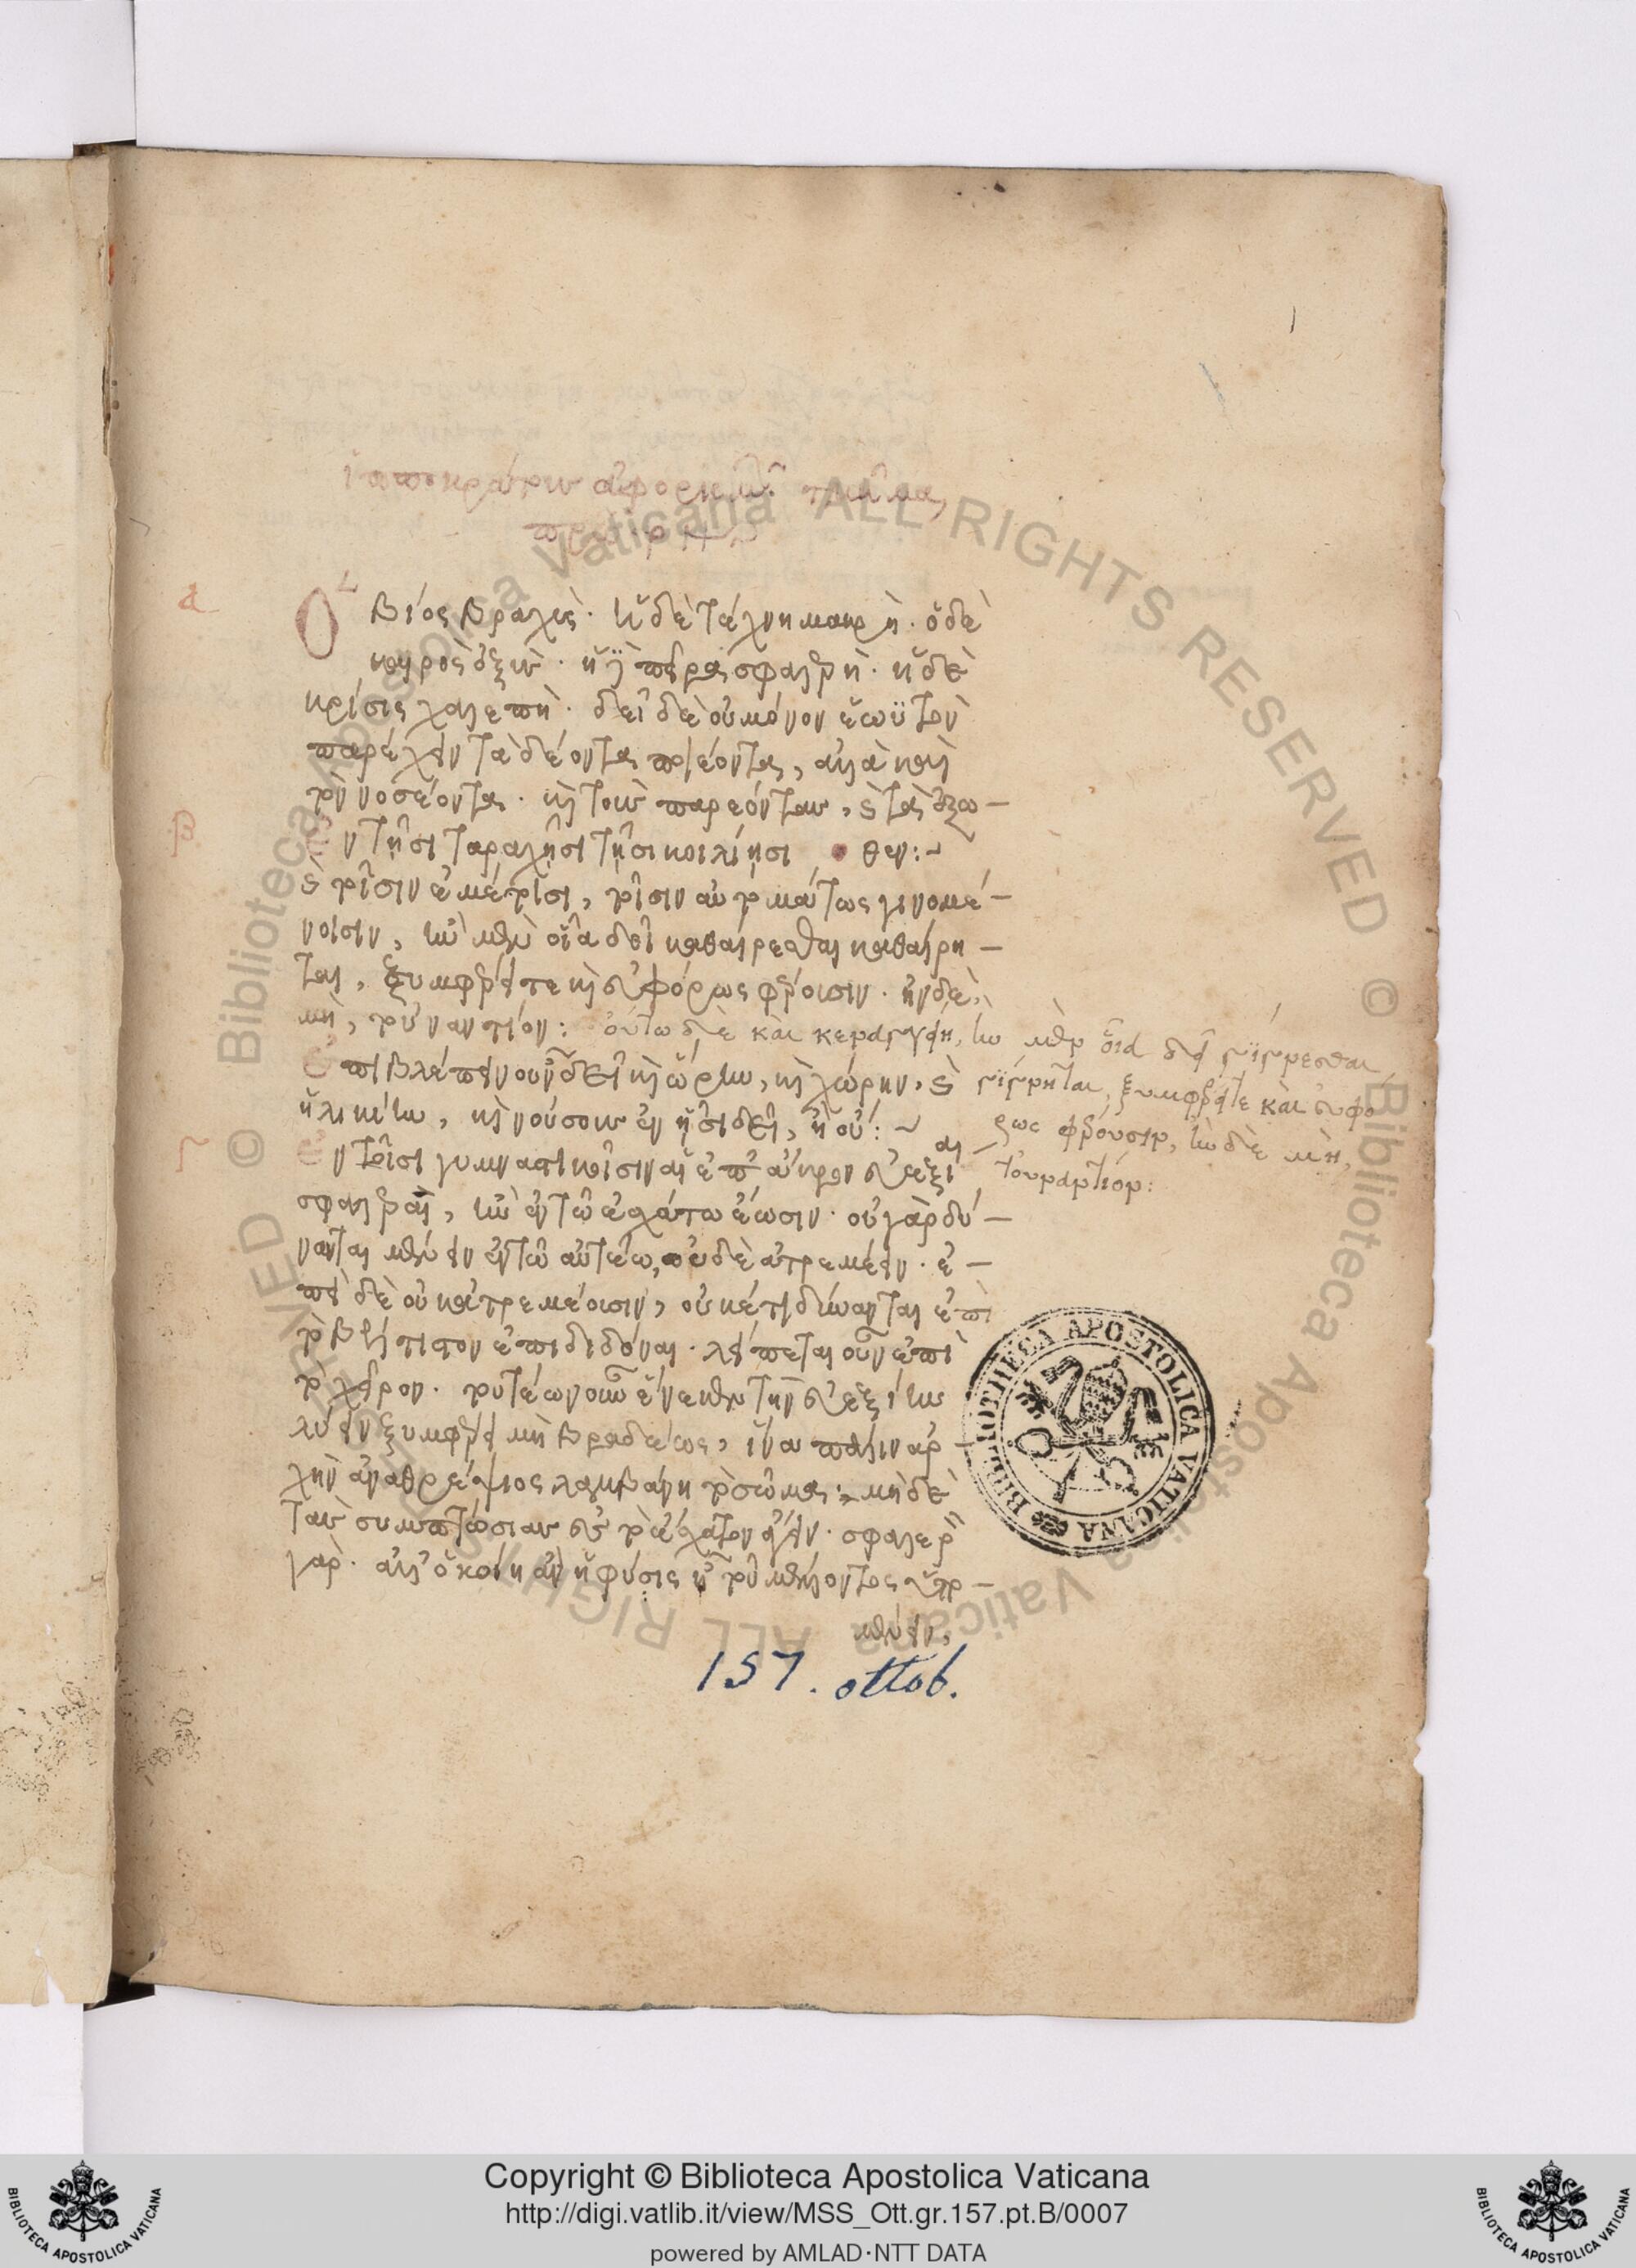 1
ἱπποκράτους ἀφορισμῶν τμῆμα
πρῶτον
α
Ὁ βίος βραχὺς· ἡ δὲ τέχνη μακρὴ· ὁ δὲ
καιρὸς ὀξὺς· ἡ δὲ πεῖρα σφαλερὴ· ἡ δὲ
κρίσις χαλεπὴ· δεῖ δὲ οὐ μόνον ἑωϋτὸν
παρέχειν τὰ δέοντα ποιέοντα, ἀλλὰ καὶ
τὸν νοσέοντα· καὶ τοὺς παρεόντας, καὶ τὰ ἔξω-
θεν:~
β
Ἐν τῇσι ταραχῇσι τῇσι κοιλίῃσι
καὶ τοῖσιν ἐμέτοισι, τοῖσιν αὐτομάτως γινομέ-
νοισιν, ἢν μὲν οἷα δεῖ καθαίρεσθαι καθαίρη-
ται, ξυμφέρει τε καὶ εὐφόρως φέροισιν· ἢν δὲ
μὴ, τοὐναντίον: οὕτω δὲ καὶ κεναγγείη, ἢν μὲν οἷα δεῖ γίγνεσθαι
γίγνηται, ξυμφέρει τε καὶ εὐφό
ρως φέρουσιν, ἢν δὲ μὴ,
τοὐναντίον:
Ἐπιβλέπειν οὖν δεῖ καὶ ὥρην, καὶ χώρην, καὶ
ἡλικίην, καὶ νούσους ἐν ᾗσι δεῖ, ἢ οὔ:~
γ
Ἐν τοῖσι γυμναστικοῖσιν αἱ ἐπ' ἄκρον εὐεξίαι
σφαλεραὶ, ἢν ἐν τῷ ἐσχάτω ἔωσιν· οὐ γὰρ δύ-
νανται μένειν ἐν τῷ αὐτέω, οὐδὲ ἀτρεμέειν· ἐ-
πεὶ δὲ οὐκ ἀτρεμέοισιν, οὐκέτι δύνανται ἐπὶ
τὸ βέλτιστον ἐπιδιδόναι· λείπεται οὖν ἐπὶ
τὸ χεῖρον· τουτέων οὖν εἵνεκεν τὴν εὐεξίην
λύειν ξυμφέρει μὴ βραδέως, ἵνα πάλιν ἀρ-
χὴν ἀναθρέψιος λαμβάνη τὸ σῶμα: μηδὲ
τὰς συμπτώσιας ἐς τὸ ἔσχατον ἄγειν· σφαλερὸν
γάρ· ἀλλ' ὁκοίη ἂν ἡ φύσις ᾖ τοῦ μέλλοντος ὑπο-
μένειν,
157. ottob.
BIBLIOTHECA APOSTOLICA VATICANA
© Biblioteca Apostolica Vaticana ALL RIGHTS RESERVED © Biblioteca Apostolica Vaticana ALL RIGHTS RESERVED
Copyright © Biblioteca Apostolica Vaticana
http://digi.vatlib.it/view/MSS_Ott.gr.157.pt.B/0007
powered by AMLAD·NTT DATA
BIBLIOTECA APOSTOLICA VATICANA
BIBLIOTECA APOSTOLICA VATICANA